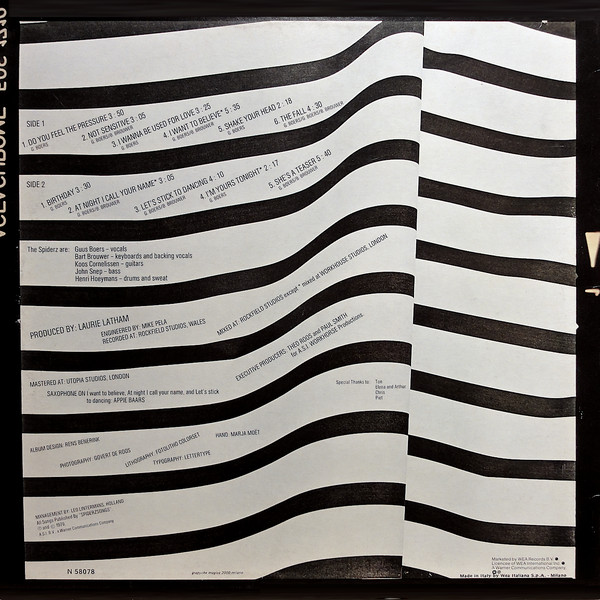 SIDE 1
1. DO YOU FEEL THE PRESSURE 3:50
G. BOERS
2. NOT SENSITIVE 3:05
G. BOERS/B. BROUWER
3. I WANNA BE USED FOR LOVE 3:25
G. BOERS
4. I WANT TO BELIEVE* 5:35
G. BOERS/B. BROUWER
5. SHAKE YOUR HEAD 2:18
G. BOERS
6. THE FALL 4:30
G. BOERS/B. BROUWER
SIDE 2
1. BIRTHDAY 3:30
G. BOERS
2. AT NIGHT I CALL YOUR NAME* 3:05
G. BOERS/B. BROUWER
3. LET'S STICK TO DANCING 4:10
G. BOERS/B. BROUWER
4. I'M YOURS TONIGHT* 2:17
G. BOERS
5. SHE'S A TEASER 5:40
G. BOERS/B. BROUWER
The Spiderz are: Guus Boers – vocals
Bart Brouwer – keyboards and backing vocals
Koos Cornelissen – guitars
John Snep – bass
Henri Hoeymans – drums and sweat
PRODUCED BY: LAURIE LATHAM
ENGINEERED BY: MIKE PELA
RECORDED AT: ROCKFIELD STUDIOS, WALES
MIXED AT: ROCKFIELD STUDIOS except * mixed at WORKHOUSE STUDIOS, LONDON
EXECUTIVE PRODUCERS: THEO ROOS and PAUL SMITH
for A.S.I. WORKHORSE Productions.
MASTERED AT: UTOPIA STUDIOS, LONDON
SAXOPHONE ON I want to believe, At night I call your name, and Let's stick
to dancing: APPIE BAARS
Special Thanks to: Ton
Elvisa and Arthur
Chris
Piet
ALBUM DESIGN: RENS BENERINK
PHOTOGRAPHY: GOVERT DE ROOS
LITHOGRAPHY: FOTOLITHO COLORSET
TYPOGRAPHY: LETTERTYPE
HAND: MARJA MOËT
MANAGEMENT BY: LEO LINTERMANS, HOLLAND
All Songs Published By
a Warner Communications Company
N 58078
Marketed by WEA Records B.V.
Licensee of WEA International Inc.
A Warner Communications Company
Made in Italy by Wea Italiana S.p.A. - Milano